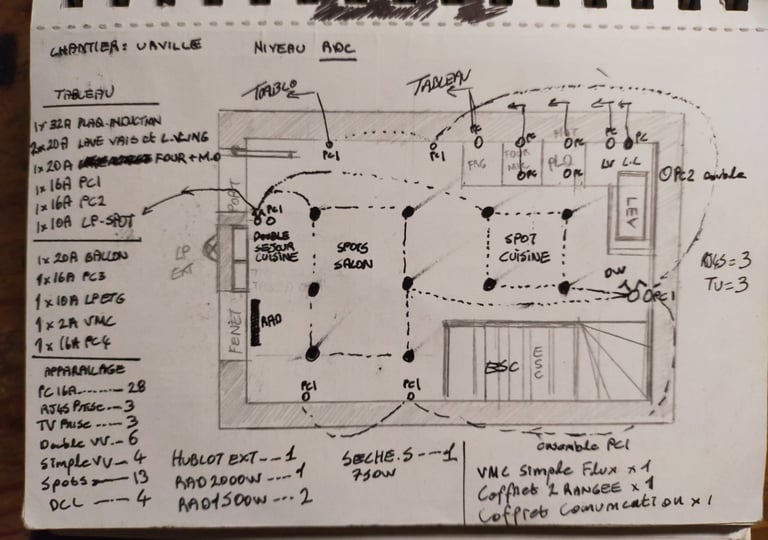 CHANTIER: URVILLE
NIVEAU RDC
TABLEAU
1x 32A PLAQ-INDUCTION
2x 20A LAVE VAIS et L.LING
1x 20A FOUR + M.O
1x 16A PC1
1x 16A PC2
1x 10A LP-SPOT
1x 20A BALLON
1x 16A PC3
1x 10A LP ETG
1x 2A VMC
1x 16A PC4
APPARAILAGE
PC 16A ------- 28
RJ45 Prise -- 3
TV Prise ---- 3
Double VV -- 6
Simple VV -- 4
Spots ---- 13
DCL ---- 4
TABLO
TABLEAU
PC1
PC1
PC
PC
PC
PC
PC
PC
FRG
FOUR
HOT
PLQ
LV
L.L
PC2 Double
LEV
PORT
PC1
DOUBLE
SEJOUR
CUISINE
SPOTS
SALON
SPOT
CUISINE
LP
EX
FENET
RAD
PC1
RJ45 = 3
TV = 3
ESC
ESC
PC1
PC1
ensemble PC1
HUBLOT EXT --- 1
RAD 2000W ---- 1
RAD 1500W --- 2
SECHE.S --- 1
750W
VMC Simple Flux x 1
Coffret 2 RANGEE x 1
Coffret Comunication x 1